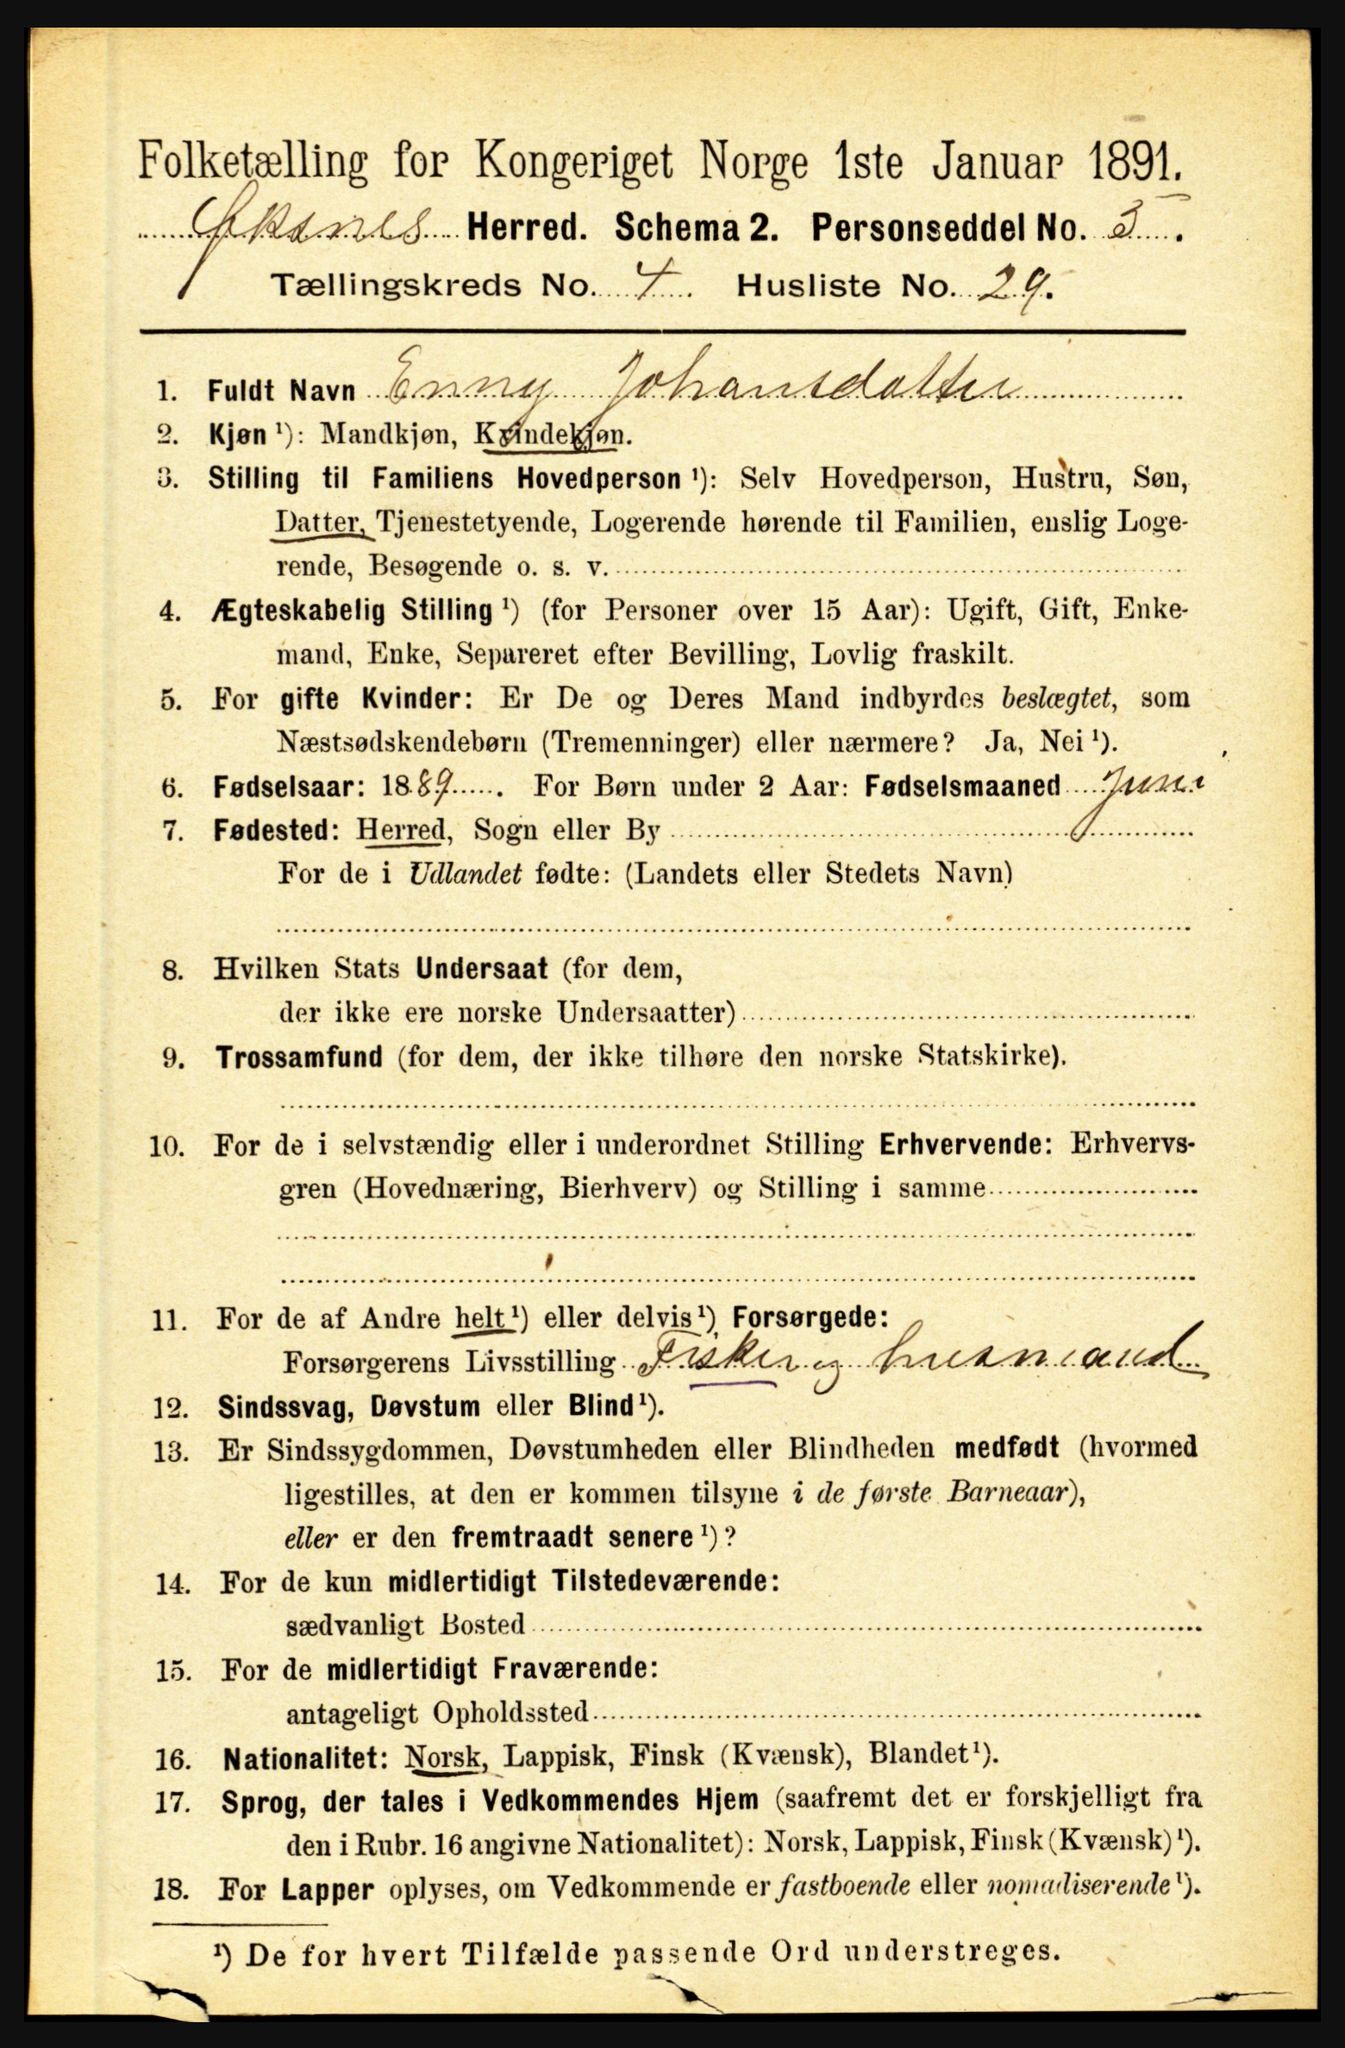 Folketælling for Kongeriget Norge 1ste Januar 1891.
Øksnes Herred. Schema 2. Personseddel No. 5.
Tællingskreds No. 4 Husliste No. 29.
1. Fuldt Navn Enny Johansdatter
2. Kjøn ¹): Mandkjøn, Kvindekjøn.
3. Stilling til Familiens Hovedperson ¹): Selv Hovedperson, Hustru, Søn,
Datter, Tjenestetyende, Logerende hørende til Familien, enslig Loge-
rende, Besøgende o. s. v.
4. Ægteskabelig Stilling ¹) (for Personer over 15 Aar): Ugift, Gift, Enke-
mand, Enke, Separeret efter Bevilling, Lovlig fraskilt.
5. For gifte Kvinder: Er De og Deres Mand indbyrdes beslægtet, som
Næstsødskendebørn (Tremenninger) eller nærmere? Ja, Nei ¹).
6. Fødselsaar: 1889. For Børn under 2 Aar: Fødselsmaaned Juni
7. Fødested: Herred, Sogn eller By
For de i Udlandet fødte: (Landets eller Stedets Navn)
8. Hvilken Stats Undersaat (for dem,
der ikke ere norske Undersaatter)
9. Trossamfund (for dem, der ikke tilhøre den norske Statskirke).
10. For de i selvstændig eller i underordnet Stilling Erhvervende: Erhvervs-
gren (Hovednæring, Bierhverv) og Stilling i samme
11. For de af Andre helt ¹) eller delvis ¹) Forsørgede:
Forsørgerens Livsstilling Fisker og husmand
12. Sindssvag, Døvstum eller Blind ¹).
13. Er Sindssygdommen, Døvstumheden eller Blindheden medfødt (hvormed
ligestilles, at den er kommen tilsyne i de første Barneaar),
eller er den fremtraadt senere ¹)?
14. For de kun midlertidigt Tilstedeværende:
sædvanligt Bosted
15. For de midlertidigt Fraværende:
antageligt Opholdssted
16. Nationalitet: Norsk, Lappisk, Finsk (Kvænsk), Blandet ¹).
17. Sprog, der tales i Vedkommendes Hjem (saafremt det er forskjelligt fra
den i Rubr. 16 angivne Nationalitet): Norsk, Lappisk, Finsk (Kvænsk) ¹).
18. For Lapper oplyses, om Vedkommende er fastboende eller nomadiserende ¹).
¹) De for hvert Tilfælde passende Ord understreges.